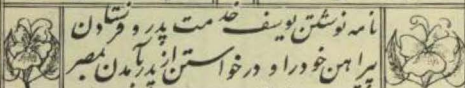 نامه نوشتن یوسف خدمت پدر و فرستادن
پیراهن خود را و درخواستن از پدر آمدن بمصر